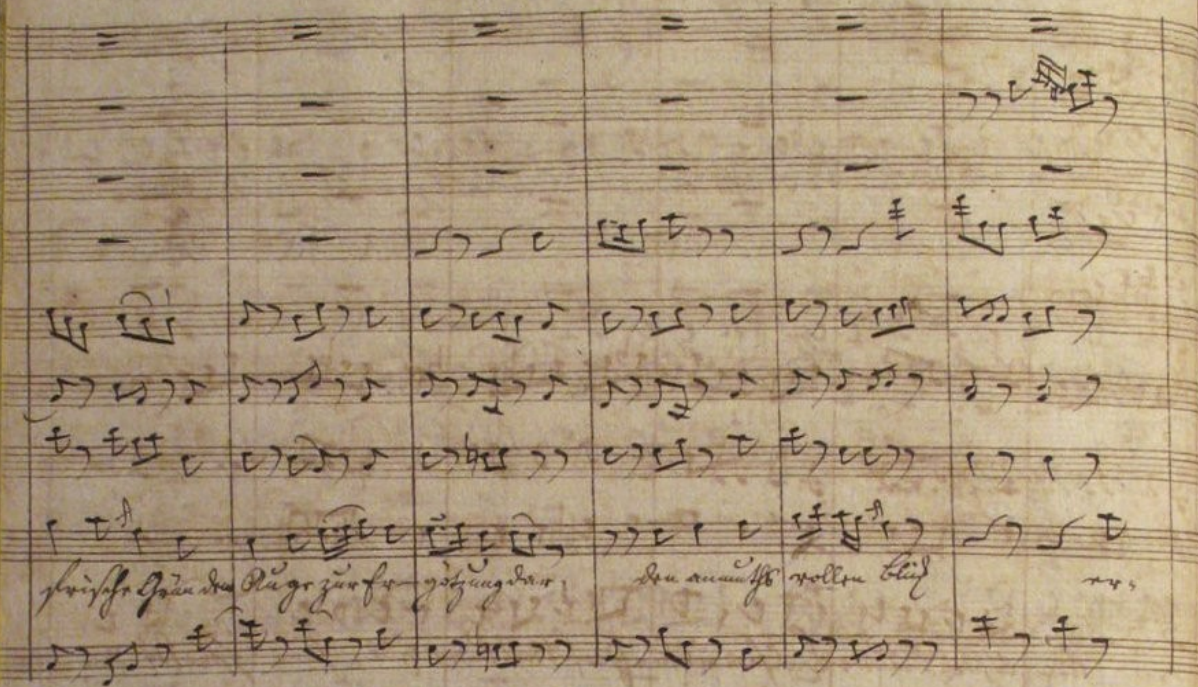 frische Grün dem Auge zur Er- götzung dar, den anmuths vollen Blick er-